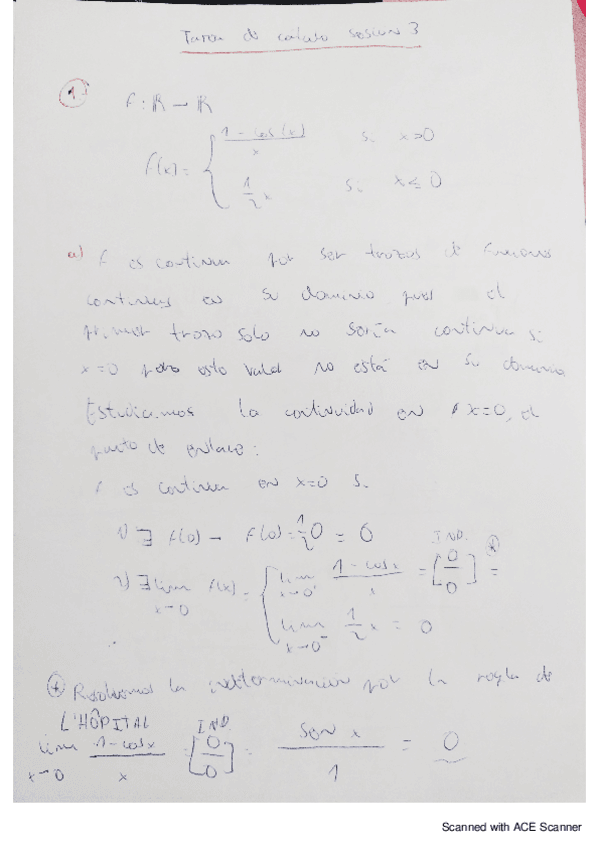 Tarea de cálculo sesión 3
1. f: ℝ → ℝ
f(x) = { (1 - cos(x))/x si x>0
1/2 x si x ≤ 0
a) f es continua por ser trozos de funciones
continuas en su dominio pues el
primer trozo solo no sería continua si
x=0 pero este valor no está en su dominio
Estudiamos la continuidad en x=0, el
punto de enlace:
f es continua en x=0 si
1) ∃ f(0) → f(0) = 1/2 · 0 = 0
2) ∃ lim x→0 f(x) = { lim x→0⁺ (1 - cos x)/x = [0/0] IND. (*) =
lim x→0⁻ 1/2 x = 0
(*) Resolvemos la indeterminación por la regla de
L'HÔPITAL
lim x→0 (1 - cos x)/x = [0/0] IND. = sen x / 1 = 0
Scanned with ACE Scanner